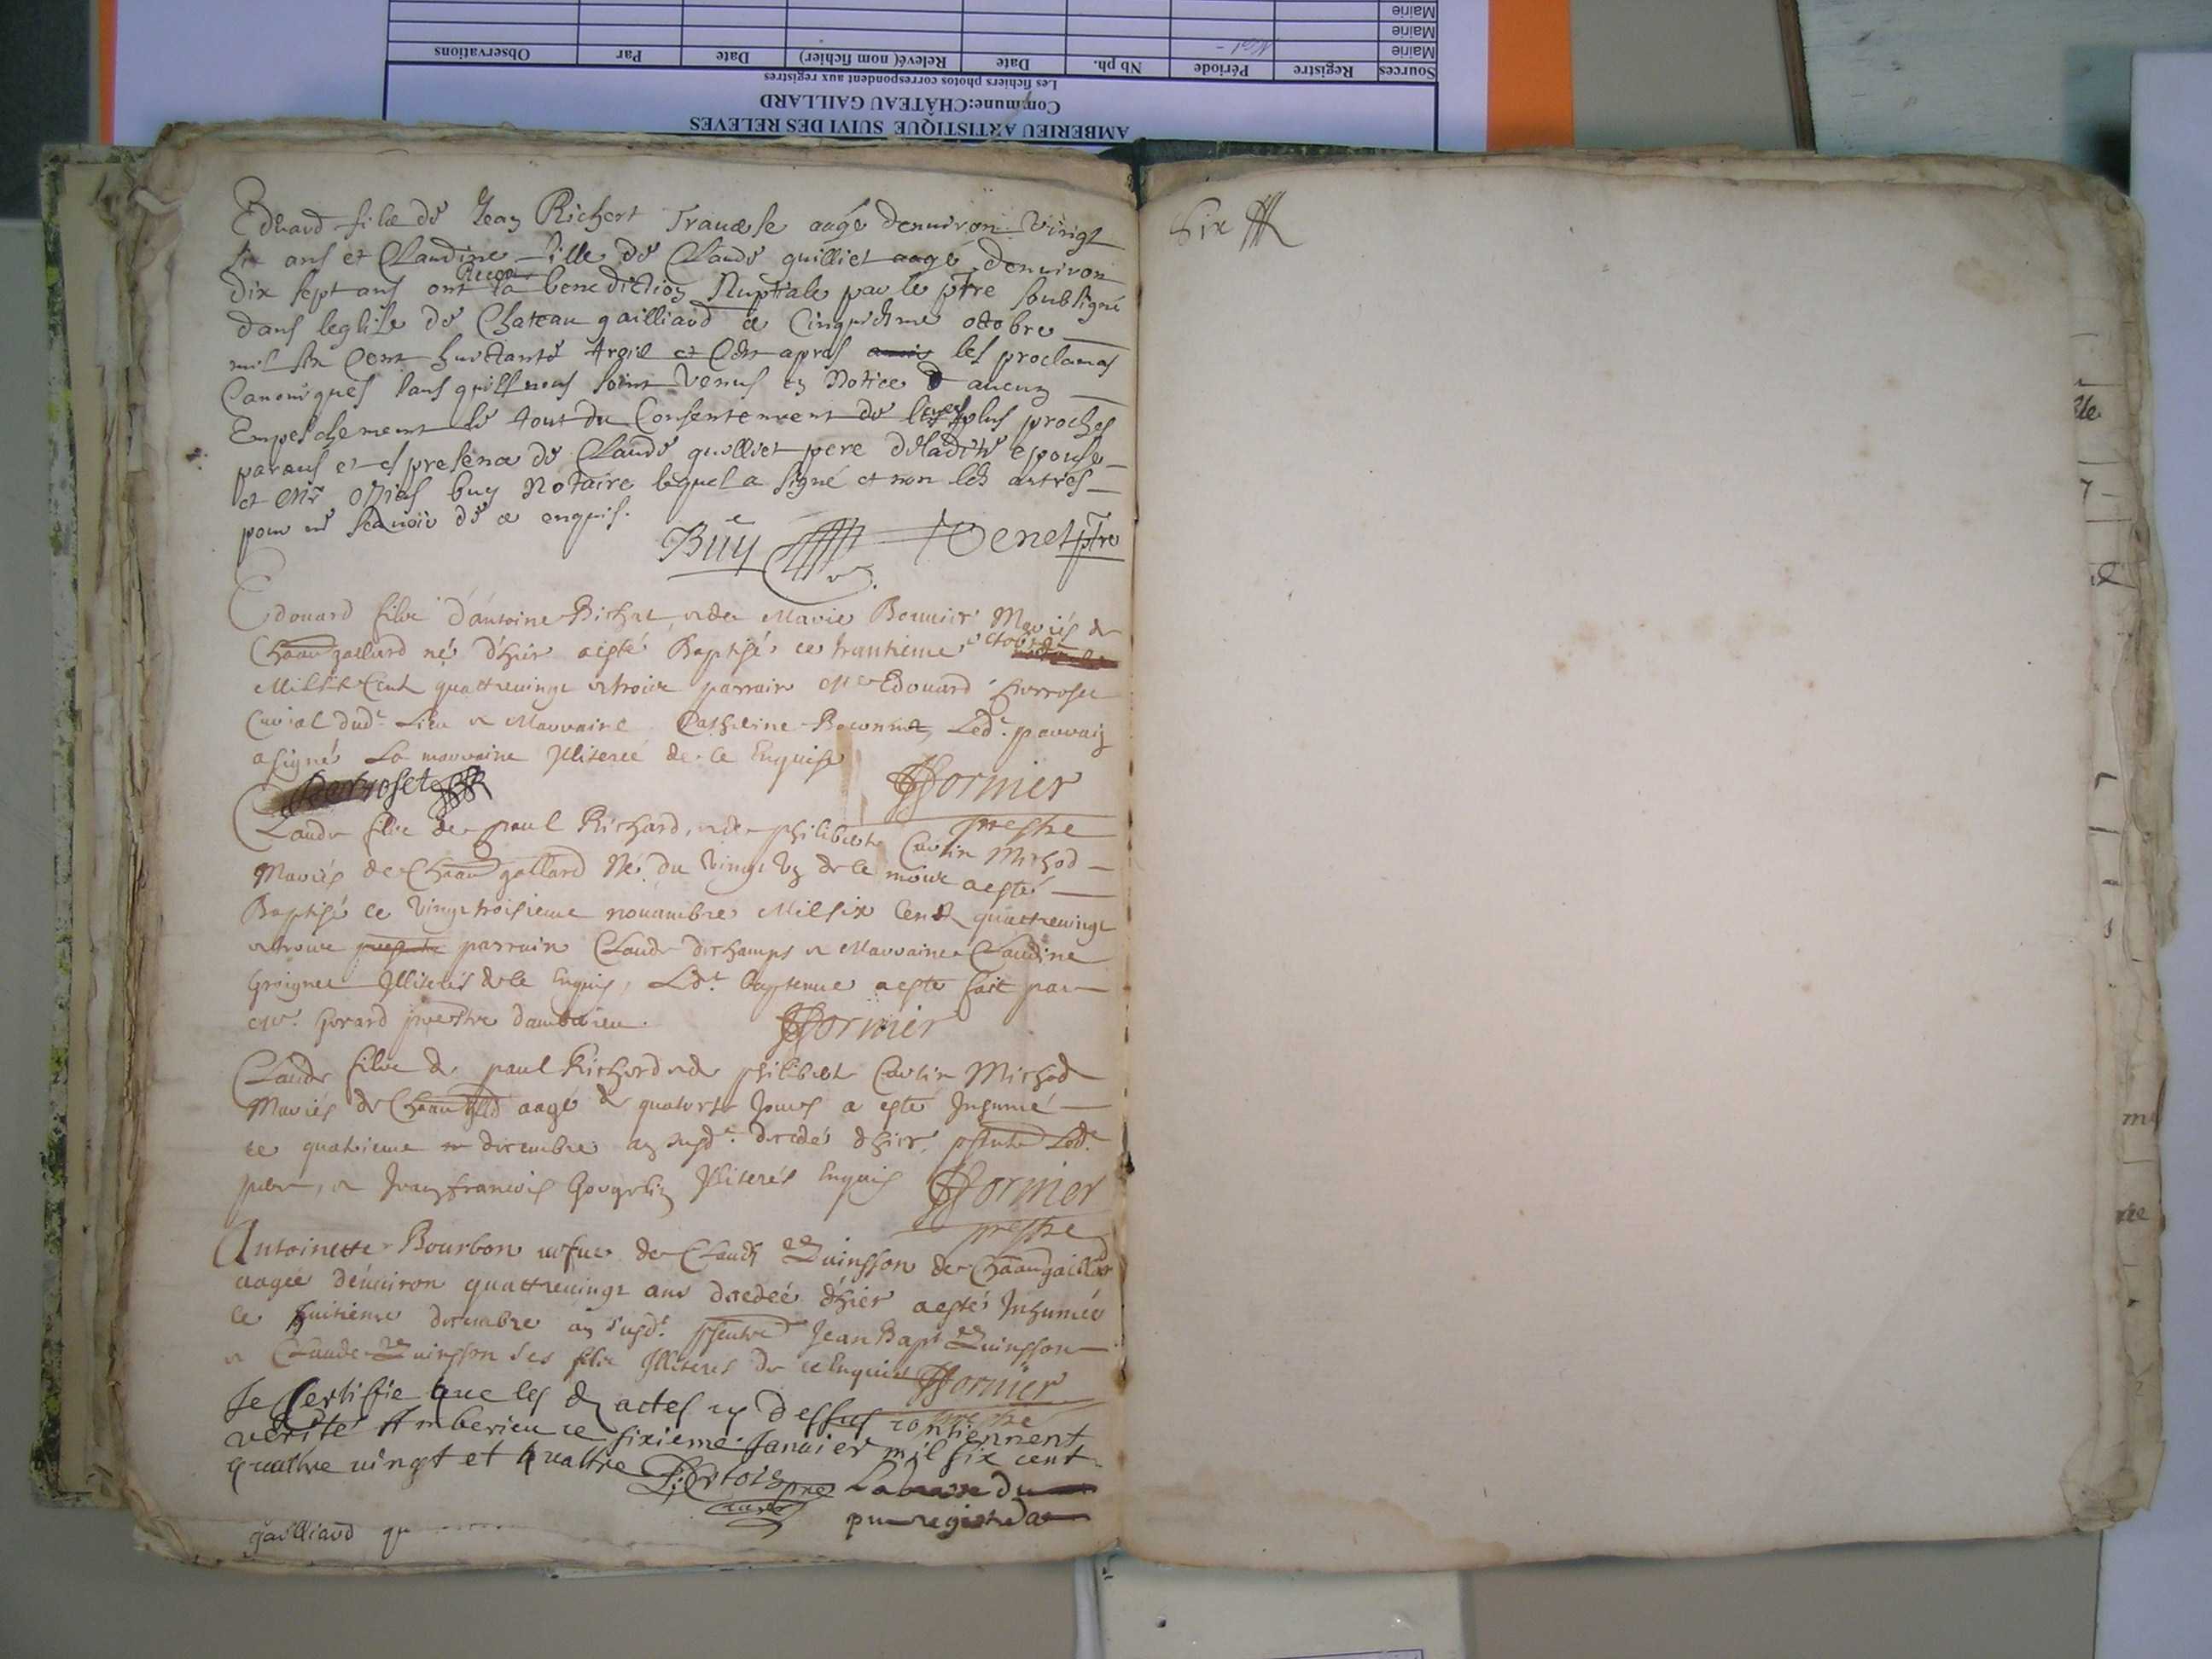 AMBERIEU ARTISTIQUE SUIVI DES RELEVES
Commune:CHÂTEAU GAILLARD
Les fichiers photos correspondent aux registres
Sources Registre Période Nb ph. Date Relevé( nom fichier) Date Par Observations
Mairie
Mairie
Mairie
Edvard filz de Jean Richert Travalse aagé denviron vingt
six ans et Claudine fille de Claude guilliet aagé denviron
dix sept ans ont receu la benediction Nuptiale par le ptre soubsigné
dans leglise de Chateau gailliard ce Cinquiesme octobre
mil six cent huictante trois et ce apres avoir les proclamas
Canoniques sans quill nous soint venus en Notice d aucun
Empeschement le tout du Consentement de leurs plus proches
parans et es presence de Claude guilliet pere de ladite epouse
et Mr Ozias buy Notaire lequel a signé et non les autres
pour ne scavoir de ce enquis.
Buy Venet ptre
Edouard filz d'antoine Richert, et de Marie Bonnier Mariés de
Chaau gaillard né d'hier a esté Baptisé ce trantieme octobre
Mil six Cent quattrevingt et troix parrain Mre Edouard Perroset
Curial dudt. Lieu et Marraine Catherine Led. parrain
a signé La marraine Illiterée de ce Enquise
Perroset fformier
prestre
Claude filz de paul Richard, et de philiberte Cartin Michod
Mariés de Chaau gallard Né du vingt un de ce moix a esté
Baptisé ce vingt troisieme novambre Mil six Cent quattrevingt
et troix parrain Claude dechamps et Marraine Claudine
groignet Illiterés de ce Enquis, Ledt. baptesme a esté fait par
Mr. gorard prestre damberieu. fformier
Claude filz de paul Richard et de philiberte Cartin Michod
Mariés de Chaau glld aagé de quatorze Jours a esté Inhumé
ce quatrieme decembre an susdt. decedé d'hier, psents Led.
pere, et Jean francois Illiterés Enquis fformier
prestre
Antoinette Bourbon vefue de Claude Quinsson de Chaaugaillard
aagée denviron quattrevingt ans decedeé d'hier a esté Inhumée
ce huitieme decembre an susdt. psents Jean Bapt Quinsson
et Claude Quinsson ses filz Illiterés de ce Enquis fformier
prestre
Je Certifie que les actes cy dessus contiennent
verité Amberieu ce sixieme Janvier mil six cent
quattre vingt et quattre
curé
gailliard qu
Six